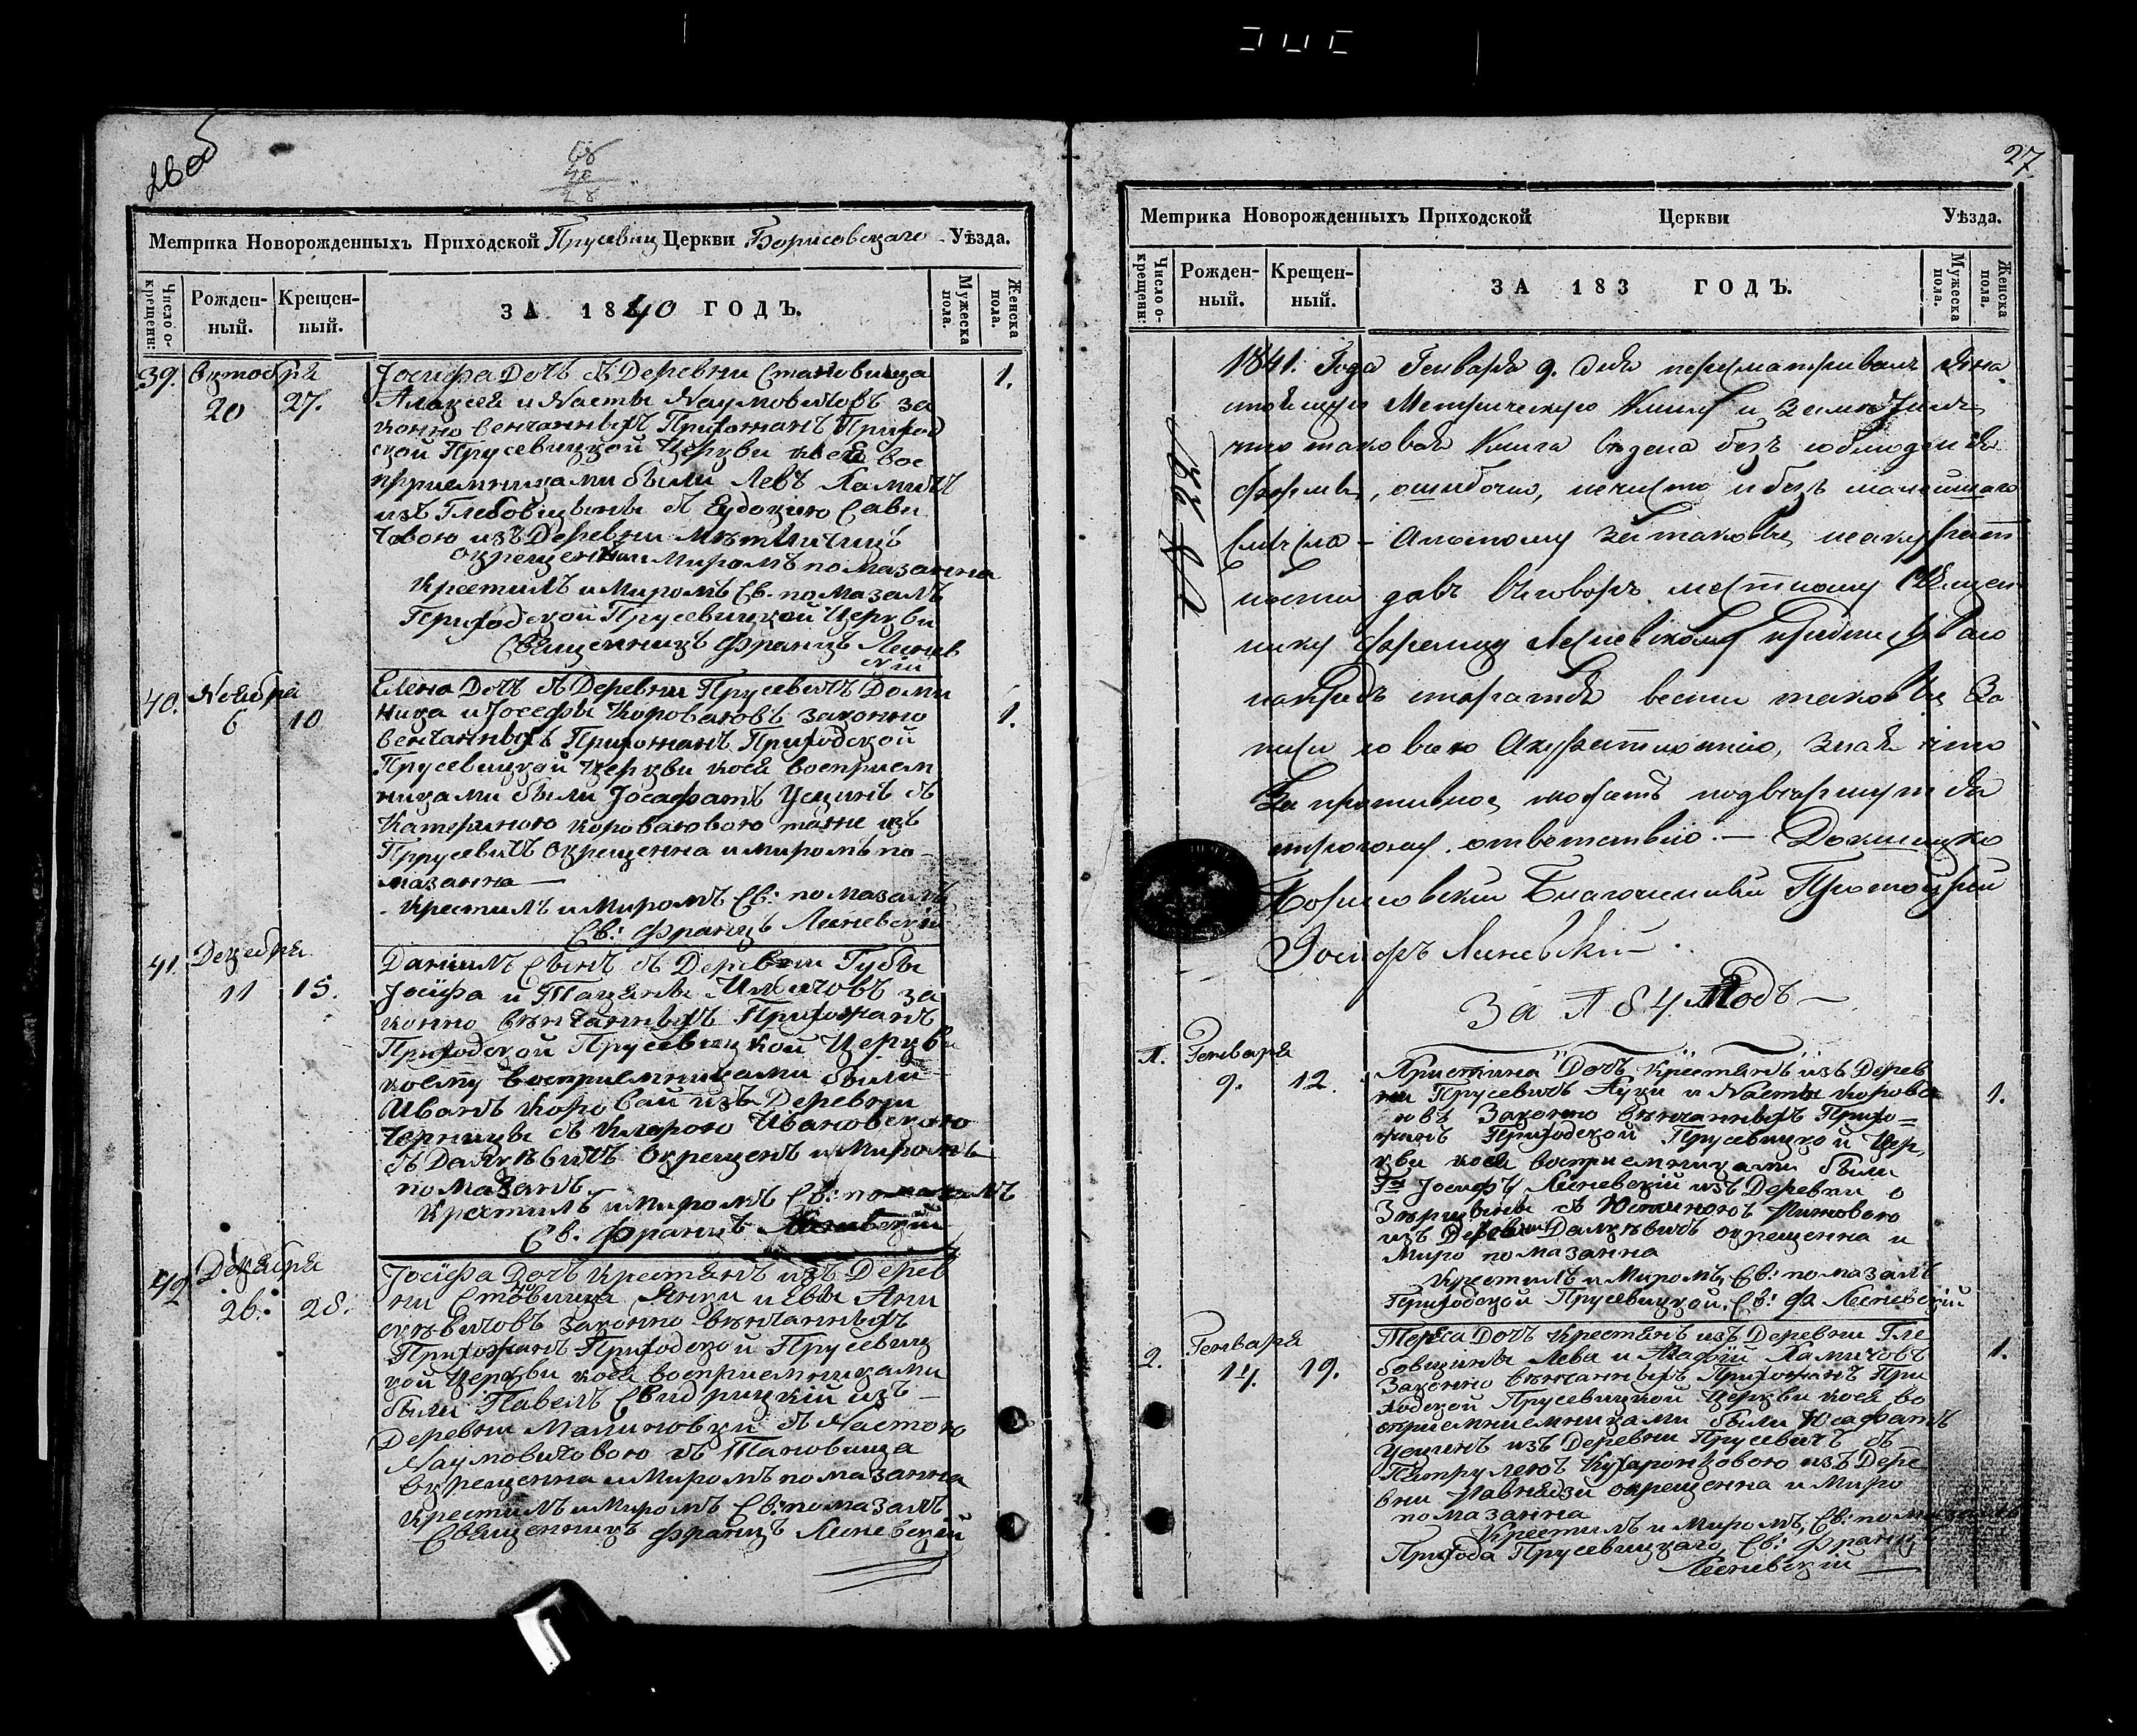 26 об
68
40
28
Метрика Новорожденныхъ Приходской Прусевиц Церкви Борисовскаго Уѣзда.
Число окрещенн:
Рожденный.
Крещенный.
ЗА 1840 ГОДЪ.
Мужеска пола.
Женска пола.
39. Октобря
20 27.
Іосифа Дочъ съ Деревни Становища 1.
Алексея и Насты Наумовичовъ за
конно венчанныхъ Прихожанъ Приход
ской Прусевицкой Церкви коей вос
приемниками были Левъ Хамичъ
изъ Глебовщины съ Еудокиею Сави
човою изъ Деревни
окрещенна и Миромъ помазанна
Крестилъ и Миромъ Св. помазалъ
Приходской Прусевицкой Церкви
Священникъ Францъ Лисnев
скій
40. Ноября
6 10
Елена Дочъ съ Деревни Прусевичъ Доми 1.
ника и Іосефы Короваювъ законно
венчанныхъ Прихожанъ Приходской
Прусевицкой Церкви коея восприем
никами были Іосафатъ Усцинъ съ
Катериною Короваювою тоже изъ
Прусевичъ Окрещенна и миромъ по
мазанна
Крестилъ и Миромъ Св: помазалъ
Св: Францъ
41. Декабря
11 15.
Даніилъ Сынъ съ Деревни Губы
Іосифа и Тацяны за
конно вѣнчанныхъ Прихожанъ
Приходской Прусевицкой Церкви
коему восприемниками были
Иванъ Коровай изъ Деревни
Черницы съ Кларою Ивановскою
съ окрещенъ и Миромъ
помазанъ
Крестилъ и Миромъ Св: помазалъ
Св. Францъ
42 Декабря
26. 28.
Іосифа Дочъ крестянъ изъ Дерев
ни Становища Янки и Евы Ани
скѣвичовъ Законно вѣнчанныхъ
Прихожанъ Приходской Прусевиц
кой Церкви коея восприемниками
были Павелъ Свидрицкій изъ
Деревни Малиновки съ Настою
Наумовичовою съ Тановища
окрещенна и Миромъ помазанна
Крестилъ и Миромъ Св: помазалъ
Священникъ Францъ
27
Метрика Новорожденныхъ Приходской Церкви Уѣзда.
Число окрещенн:
Рожденный.
Крещенный.
ЗА 183 ГОДЪ.
Мужеска пола.
Женска пола.
1841. Года Генваря 9. дня пересматривалъ я на
стоящую Метрическую Книгу и замѣтилъ
что таковая Книга ведена безъ соблюденія
формы, ошибочно, нечисто и безъ малейшаго
смысла – а потому за таковые неакурат
ности давъ выговоръ местному Священ
нику Францу предписываю
напредь старатся вести таковые За
писи со всею Акуратностію, зная что
За противное можетъ подвергнутся
строгому отвѣтствію. – Докшицко
Борисовскій Благочинный Протоіерей
Іосифъ
За 1841 Годъ
1. Генваря
9. 12.
Христина Дочъ крестянъ изъ Дерев
ни Прусевичъ Луки и Насты Корова 1.
ювъ Законно вѣнчанныхъ Прихо=
жанъ Приходской Прусевицкой Цер
кви коея восприемниками были
Гн Іосифъ изъ Деревни
съ
изъ Деревни окрещенна и
Миро помазанна
Крестилъ и Миромъ Св: помазалъ
Приходской Прусевицкой Св: Ф
2. Генваря
14. 19.
Тереса Дочъ крестянъ изъ Деревни Гле
бовщины Лева и Агафіи Хамичовъ 1.
Законно вѣнчанныхъ Прихожанъ При
ходской Прусевицкой Церкви коея во
сприемниками были Юсафатъ
Усцинъ изъ Деревни Прусевичъ съ
Петрулею изъ Дере
вни окрещенна и Миро
помазанна
Крестилъ и Миромъ Св: помазалъ
Прихода Прусевицкаго Св: Францъ